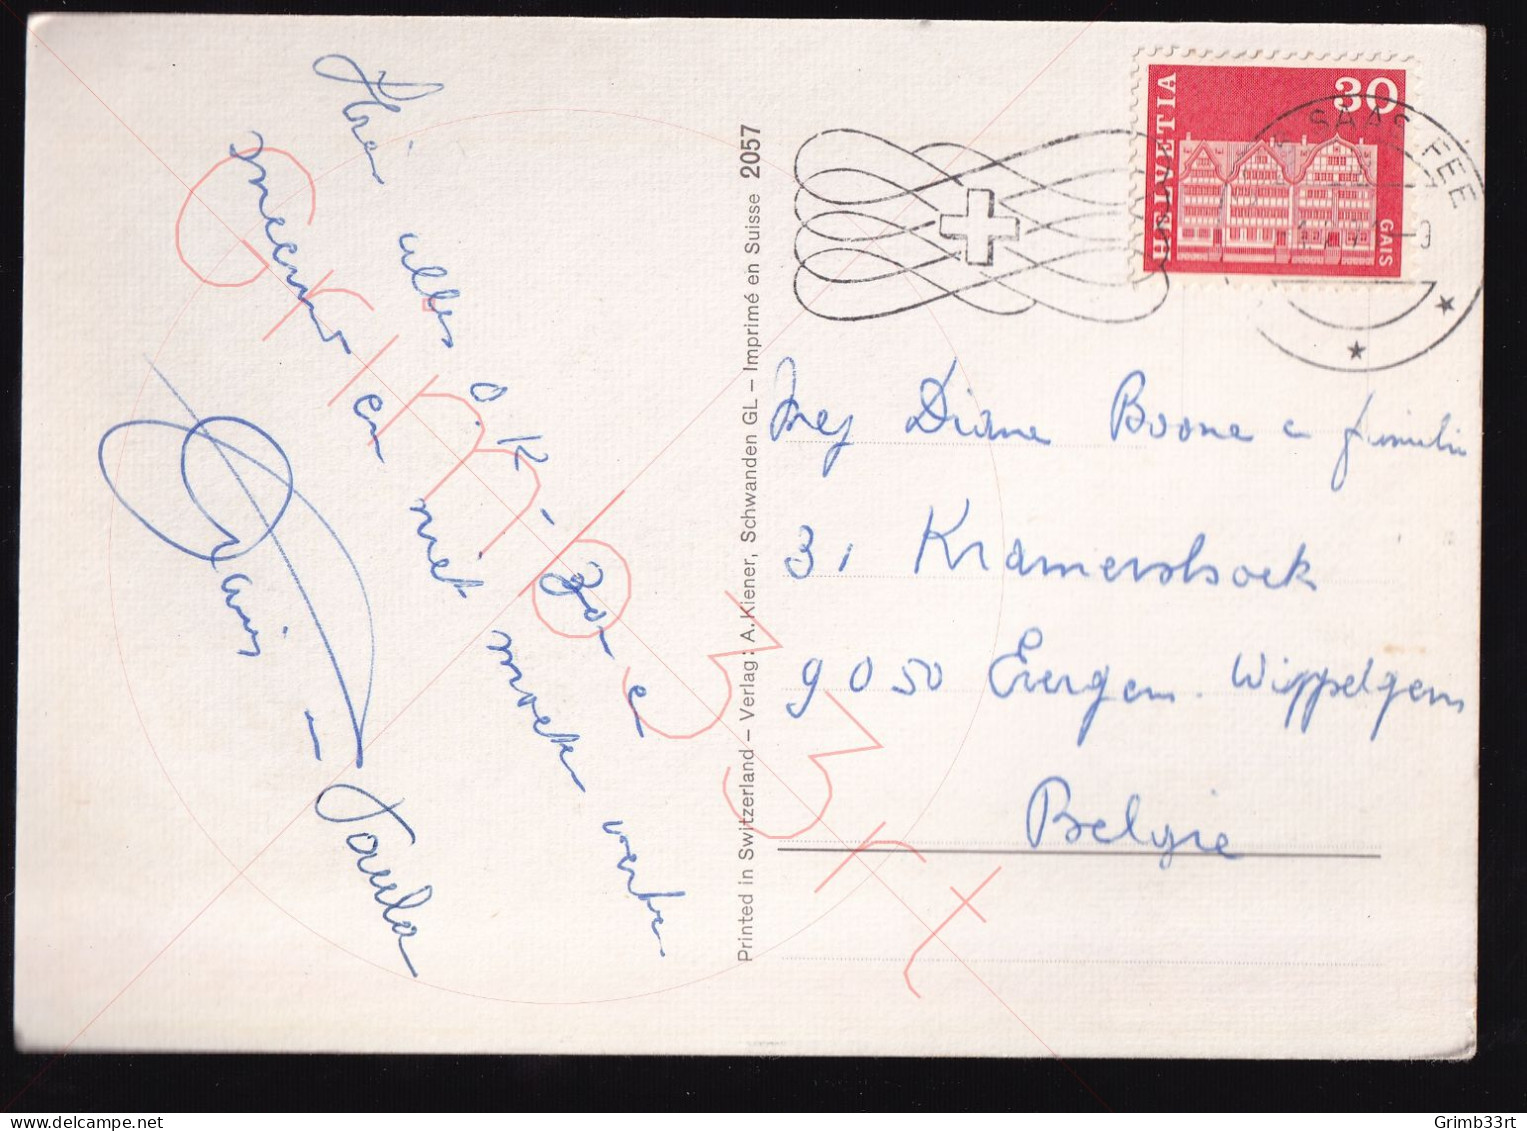 Hier alles O.K - zon en
meeuw en niet moek verbr
Paula
Printed in Switzerland – Verlag: A. Kiener, Schwanden GL – Imprimé en Suisse 2057
HELVETIA
30
GAIS
SAAS-FEE
Mej Diane Boone en familie
31 Kramershoek
9050 Evergem. Wippelgem
Belgie
Grimb33rt
Grimb33rt